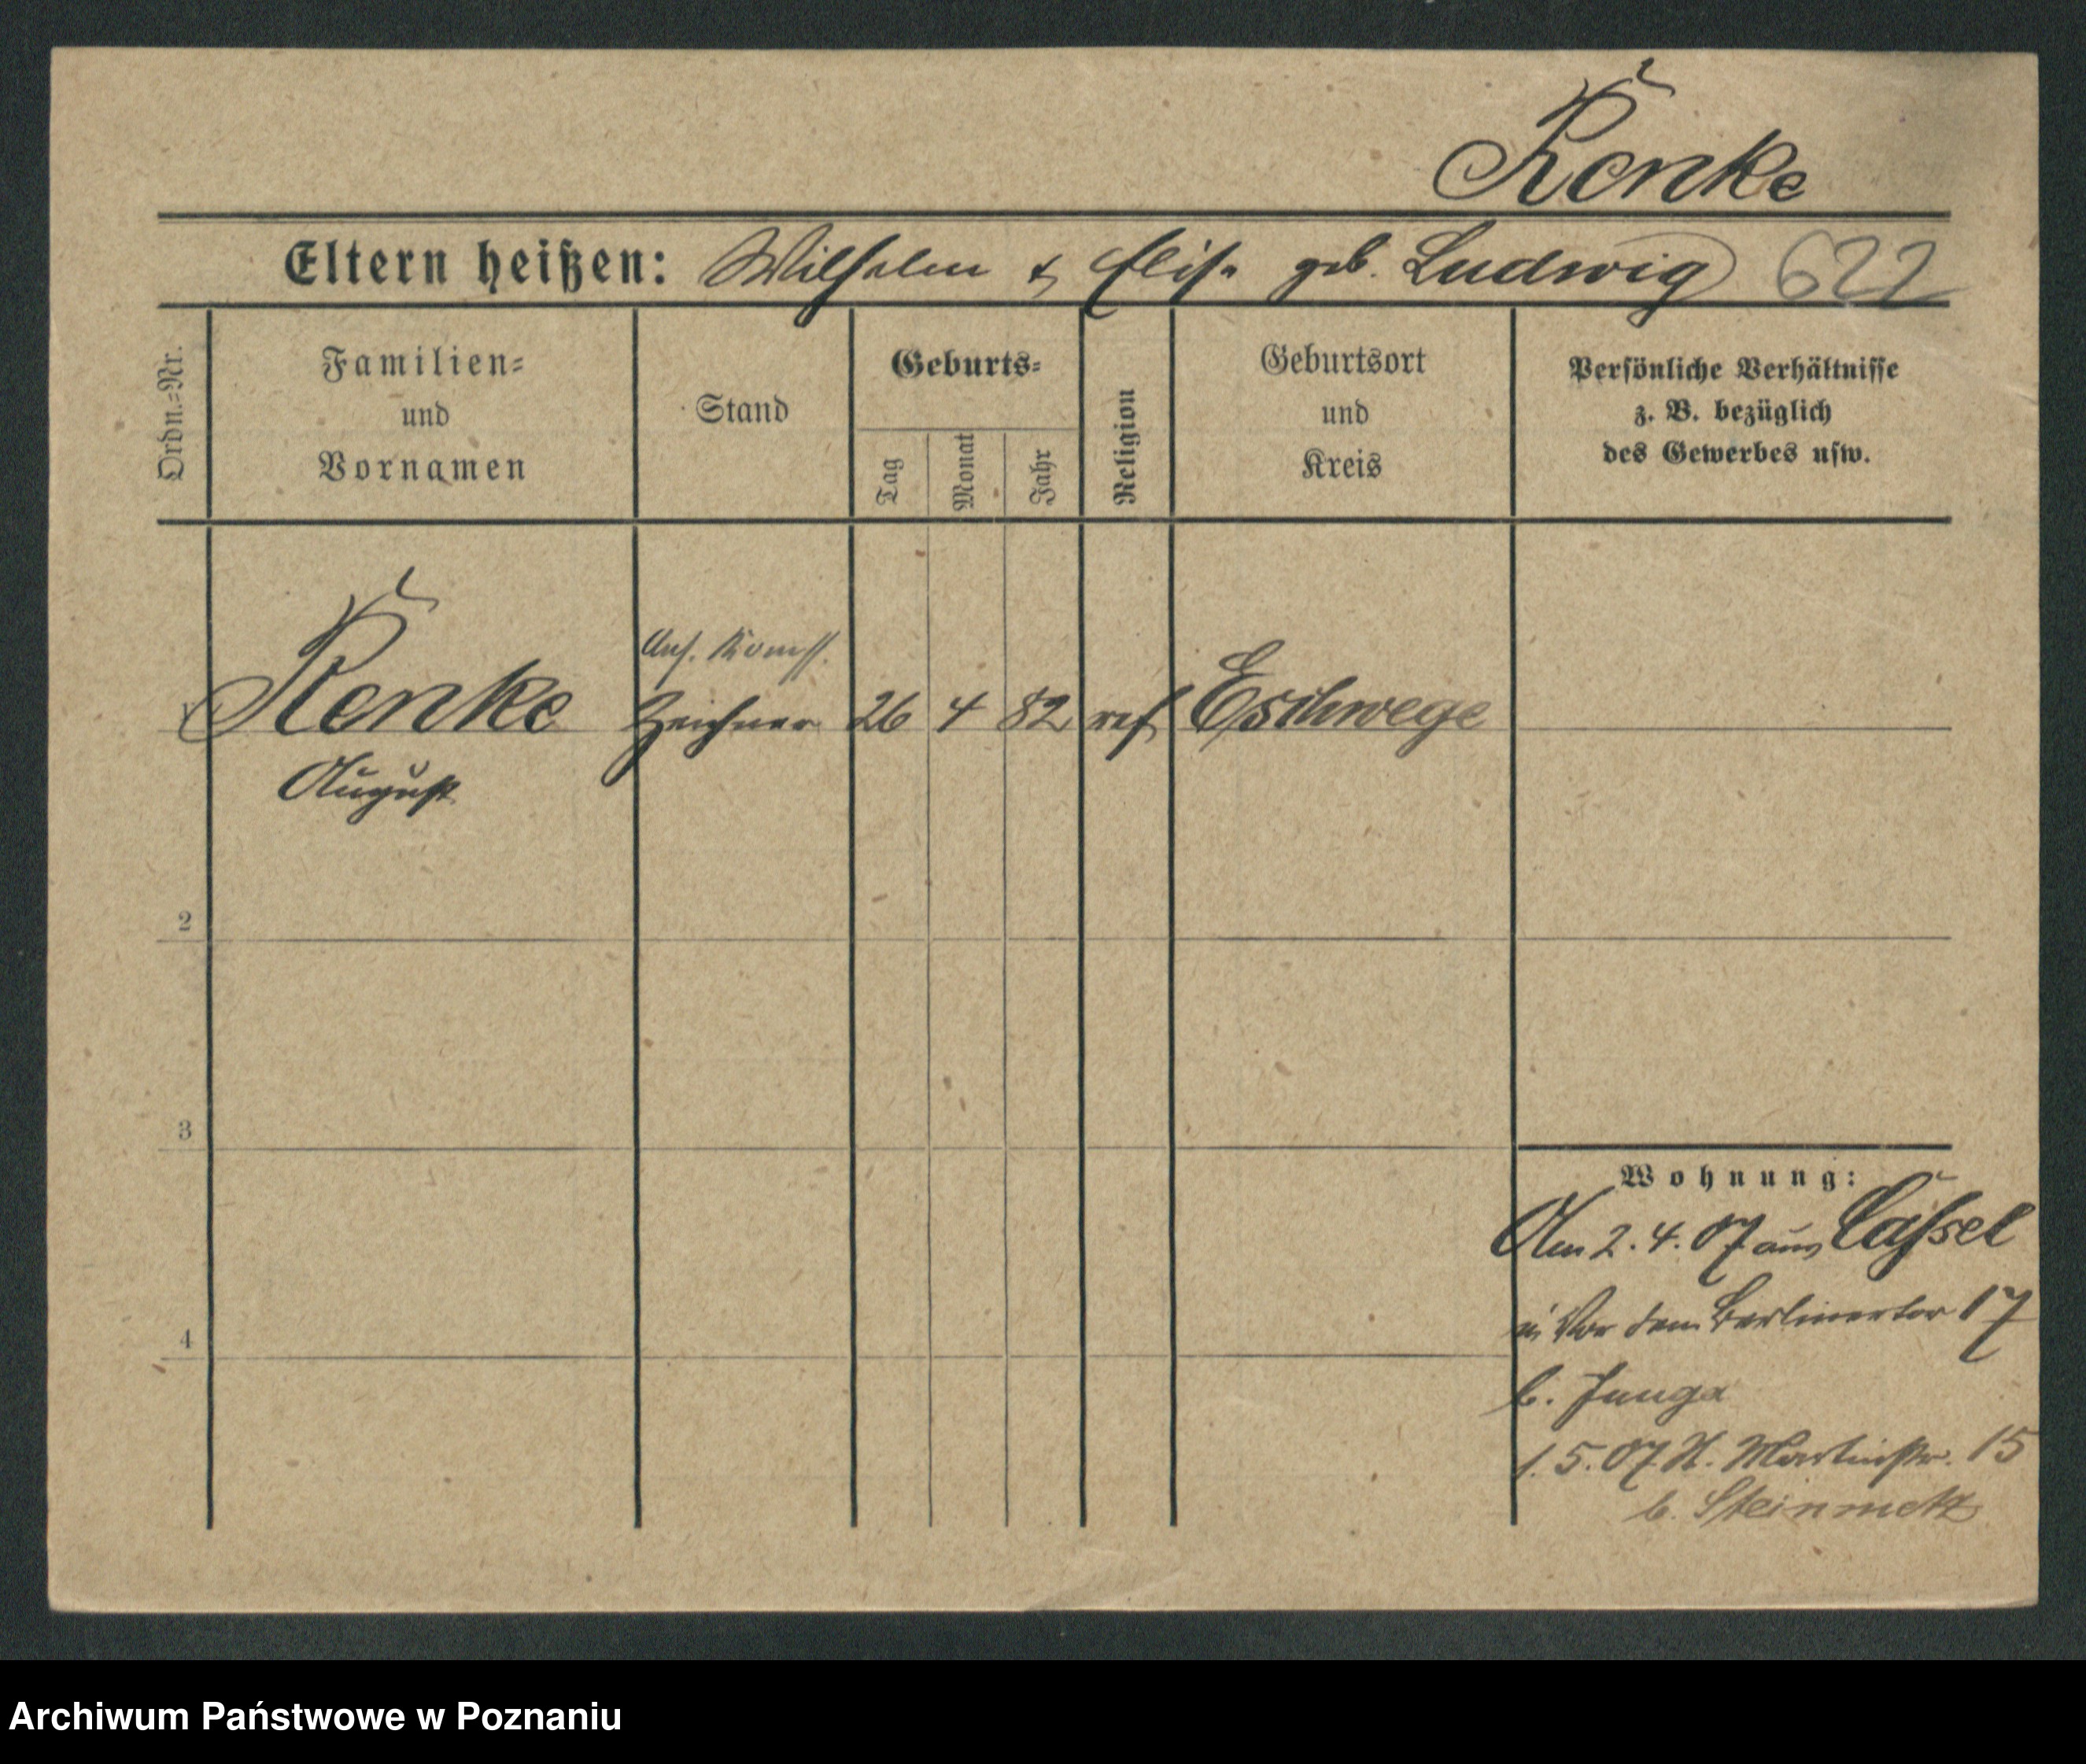 Renke
Eltern heißen: Wilhelm & Elise geb. Ludwig 622
Ordn.-Nr.
Familien-
und
Vornamen
Stand
Geburts-
Tag
Monat
Jahr
Religion
Geburtsort
und
Kreis
Persönliche Verhältnisse
z. B. bezüglich
des Gewerbes usw.
Ans. Komss.
1 Renke Zeichner 26 4 82 ref Eschwege
August
2
3
4
Wohnung:
Am 2. 4. 07 aus Cassel
n. Vor dem Berlinertor 17
b. Junga
1. 5. 07 N. Martinstr. 15
b. Steinmetz
Archiwum Państwowe w Poznaniu